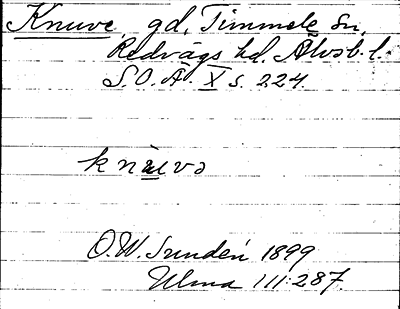 Knuve, gd, Timmele sn,
Redvägs hd. Älvsb. l.
S.O.Ä. X s. 224.
knuvə
O.W. Sundén 1899
Ulma 111:287.